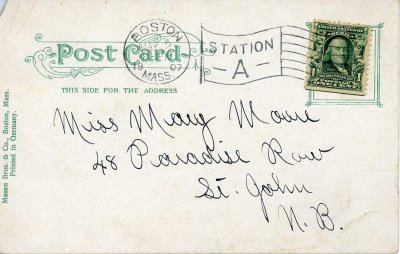 Post Card
THIS SIDE FOR THE ADDRESS
BOSTON
1907
MASS
STATION
A
Miss Mary Moore
48 Paradise Row
St. John
N.B.
Mason Bros. & Co., Boston, Mass.
Printed in Germany.